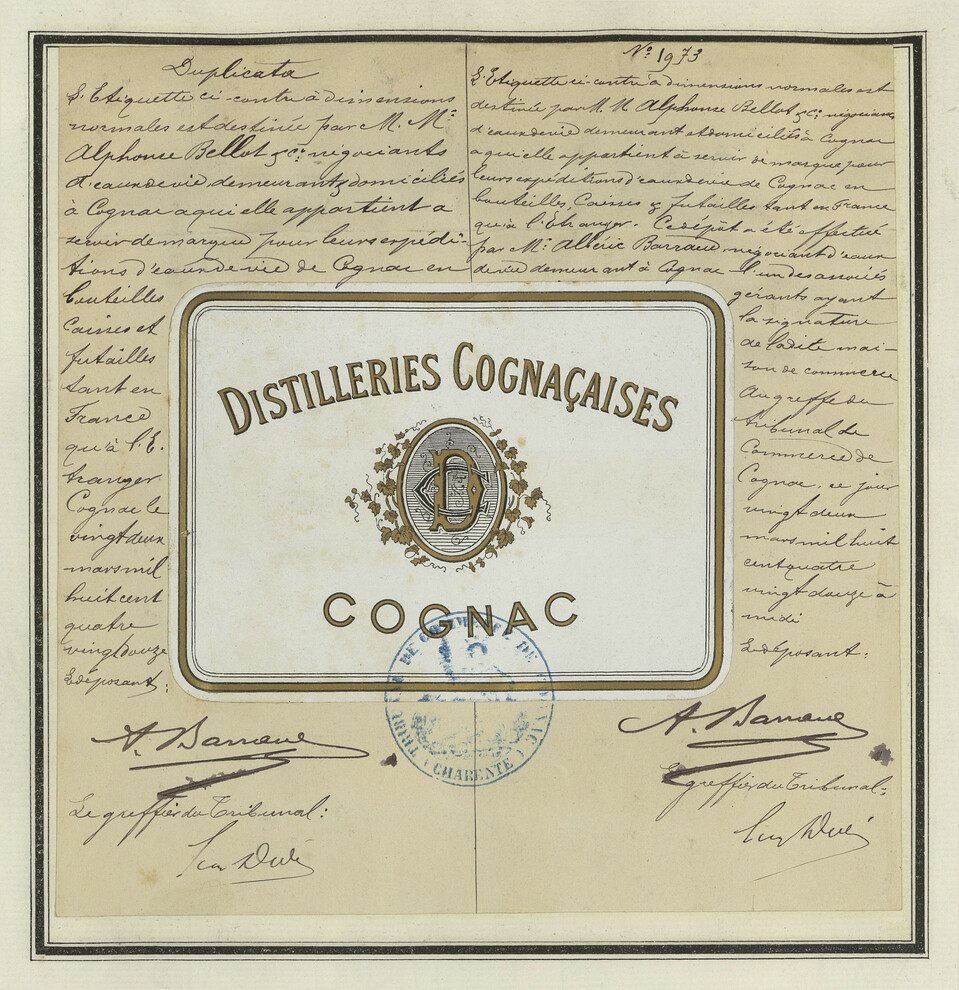 Duplicata
L'Etiquette ci-contre à dimensions
normales est destinée par M. M.rs
Alphonse Bellot & Cie négociants
d'eaux de vie, demeurant & domiciliés
à Cognac a qui elle appartient a
servir de marque pour leurs expédi-
tions d'eaux de vie de Cognac en
bouteilles
Caisses et
futailles
tant en
France
qu'à l'E.
tranger
Cognac le
vingt deux
mars mil
huit cent
quatre
vingt douze
Le déposant:
A. Barraud
Le greffier du Tribunal:
No. 1973
L'Etiquette ci-contre à dimensions normales est
destinée par M. M Alphonse Bellot & Cie négociants
d'eaux de vie demeurant et domiciliés à Cognac
a qui elle appartient à servir de marque pour
leurs expéditions d'eaux de vie de Cognac en
bouteilles, Caisses & futailles tant en France
qu'à l'Etranger. Ce dépôt a été effectué
par Mr. Albéric Barraud, négociant d'eaux
de vie demeurant à Cognac l'un des associés
gérants ayant
la signature
de ladite mai-
son de commerce
Au greffe du
tribunal de
Commerce de
Cognac, ce jour
vingt deux
mars mil huit
cent quatre
vingt douze à
midi
Le déposant:
A. Barraud
Le greffier du Tribunal:
DISTILLERIES COGNAÇAISES
COGNAC
TRIBUNAL DE COMMERCE DE COGNAC
(CHARENTE)